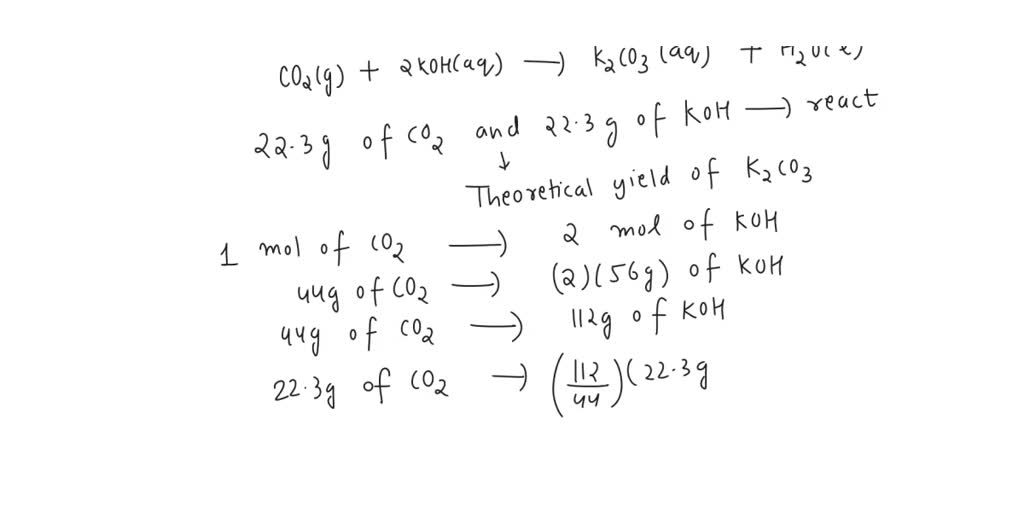 CO₂(g) + 2KOH(aq) → K₂CO₃(aq) +
22.3g of CO₂ and 22.3g of KOH → react
↓
Theoretical yield of K₂CO₃
1 mol of CO₂ → 2 mol of KOH
44g of CO₂ → (2)(56g) of KOH
44g of CO₂ → 112g of KOH
22.3g of CO₂ → (112/44)(22.3g